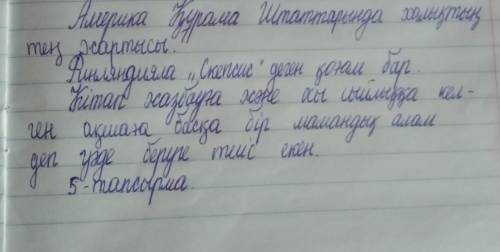 Америка Құрама Штаттарында халықтың
тең жартысы.
Финляндияла „Скепсис" деген қоғам бар.
Кітап жазбауға және осы сыйлыққа кел-
ген ақшаға басқа бір мамандық алам
деп уәде беруге тиіс екен.
5-тапсырма.